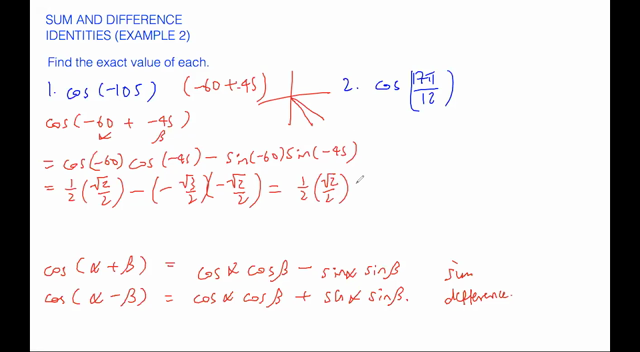 SUM AND DIFFERENCE
IDENTITIES (EXAMPLE 2)
Find the exact value of each.
1. cos(-105) (-60+-45) 2. cos(17π/12)
cos(-60 + -45)
α β
= cos(-60) cos(-45) - sin(-60) sin(-45)
= 1/2 (√2/2) - (-√3/2)(-√2/2) = 1/2 (√2/2)
cos(α+β) = cosα cosβ - sinα sinβ sum
cos(α-β) = cosα cosβ + sinα sinβ. difference.